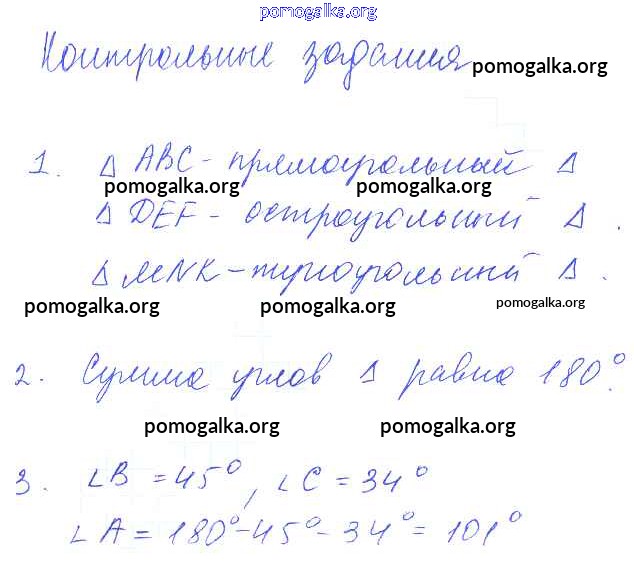 pomogalka.org
Контрольные задания pomogalka.org
1. Δ ABC - прямоугольный Δ
pomogalka.org pomogalka.org
Δ DEF - остроугольный Δ.
Δ MNK - тупоугольный Δ.
pomogalka.org pomogalka.org pomogalka.org
2. Сумма углов Δ равна 180°.
pomogalka.org pomogalka.org
3. ∠B = 45°, ∠C = 34°
∠A = 180° - 45° - 34° = 101°